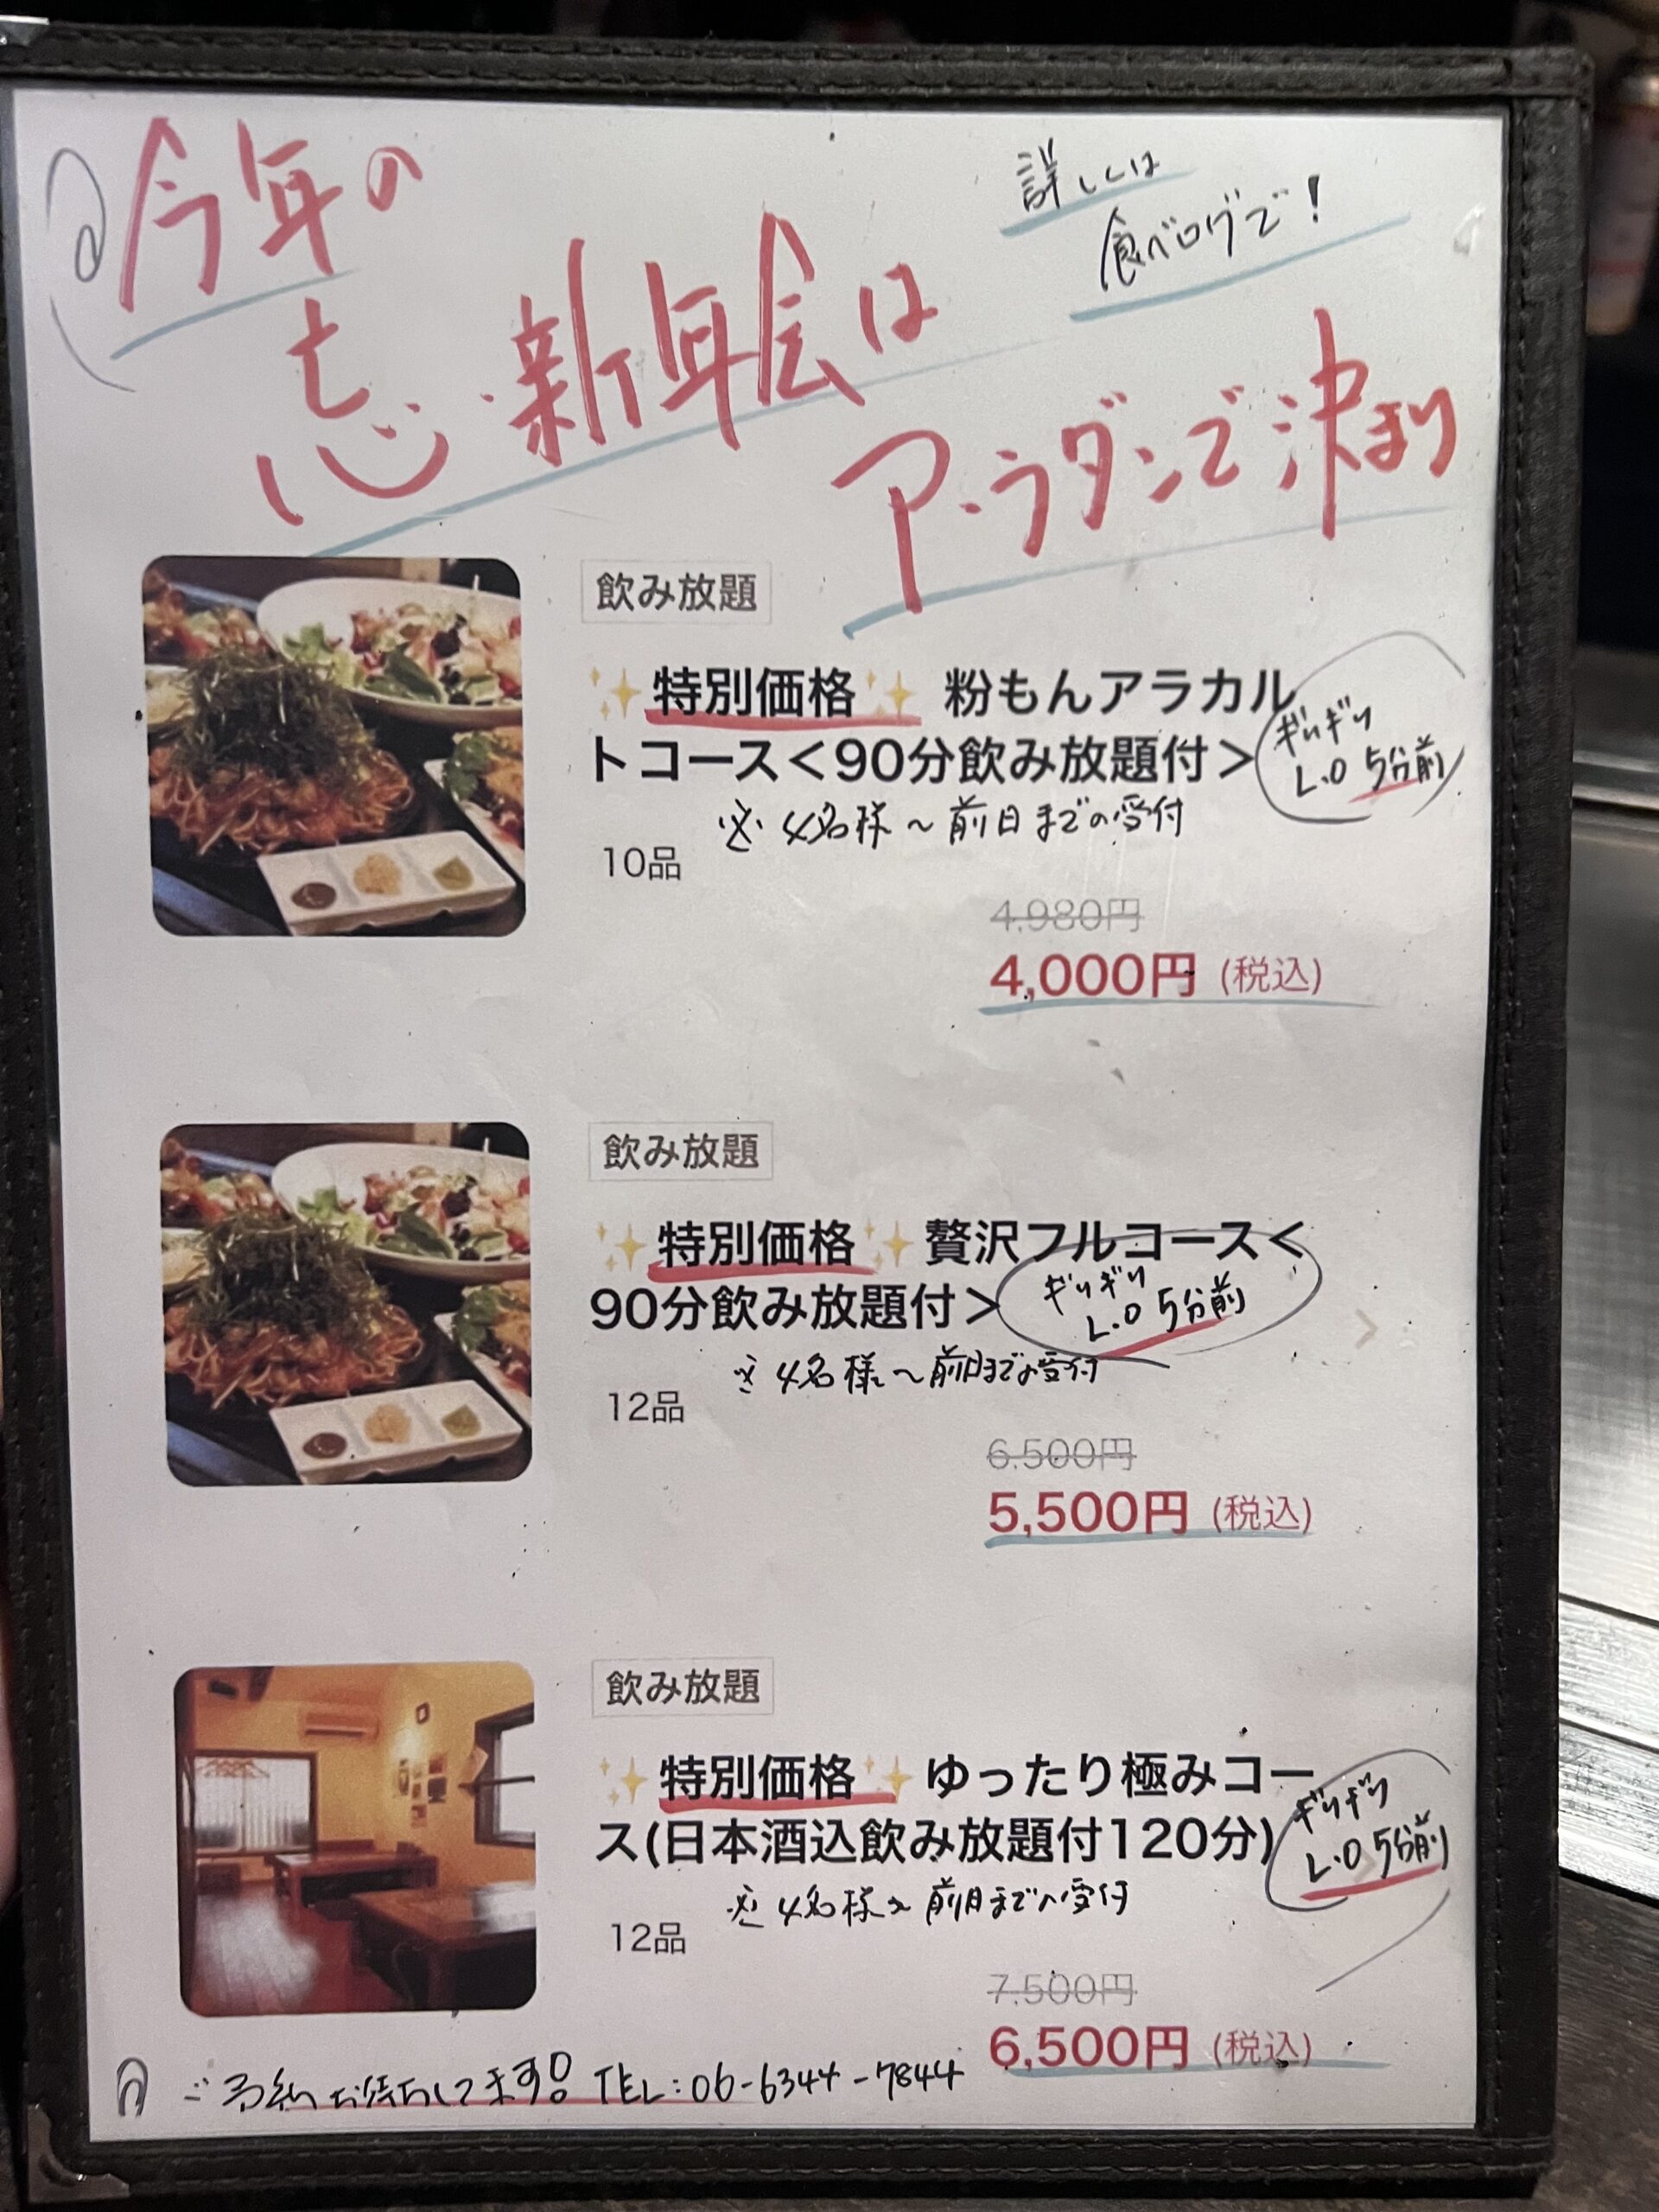 今年の
忘・新年会は
アラダンで決まり
詳しくは
食べログで!
飲み放題
✨特別価格✨ 粉もんアラカル
トコース<90分飲み放題付>
ギリギリ
L.O 5分前
※4名様〜前日までの受付
10品
4,980円
4,000円 (税込)
飲み放題
✨特別価格✨贅沢フルコース<
90分飲み放題付>
ギリギリ
L.O 5分前
※4名様〜前日までの受付
12品
6,500円
5,500円 (税込)
飲み放題
✨特別価格✨ゆったり極みコー
ス(日本酒込飲み放題付120分)
ギリギリ
L.O 5分前
※4名様〜前日までの受付
12品
7,500円
6,500円 (税込)
ご予約お待ちしてます! TEL:06-6344-7844